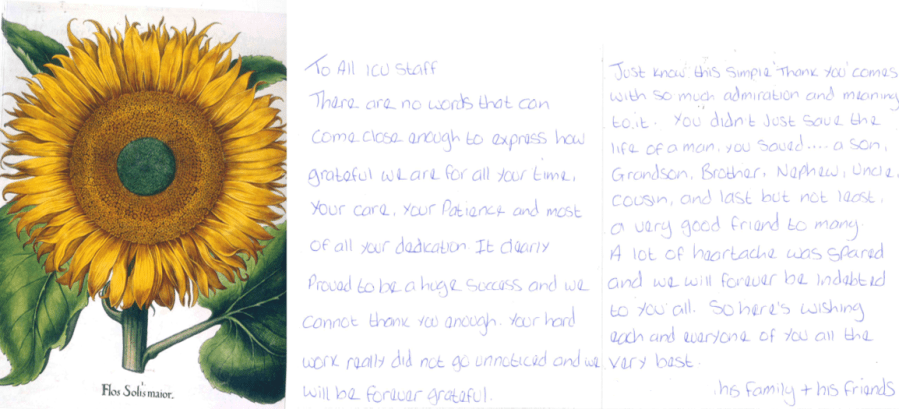 Flos Solis maior.
To All ICU Staff
There are no words that can
come close enough to express how
grateful we are for all your time,
your care, your Patience and most
of all your dedication. It clearly
Proved to be a huge success and we
cannot thank you enough. Your hard
work really did not go unnoticed and we
will be forever grateful.
Just know this simple 'Thank you' comes
with so much admiration and meaning
to it. You didn't Just save the
life of a man, you saved.... a son,
Grandson, Brother, Nephew, Uncle,
cousin, and last but not least,
a very good friend to many.
A lot of heartache was spared
and we will forever be indebted
to you all. So here's wishing
each and everyone of you all the
very best.
his family + his friends